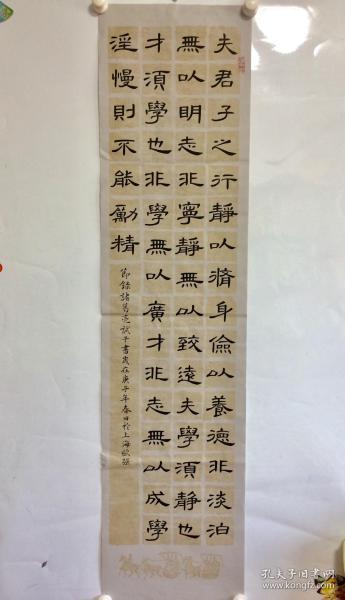 夫君子之行靜以脩身儉以養德非淡泊
無以明志非寧靜無以致遠夫學須靜也
才須學也非學無以廣才非志無以成學
淫慢則不能勵精
節錄諸葛亮誡子書歲在庚子年春日於上海
孔夫子旧书网
www.kongfz.com